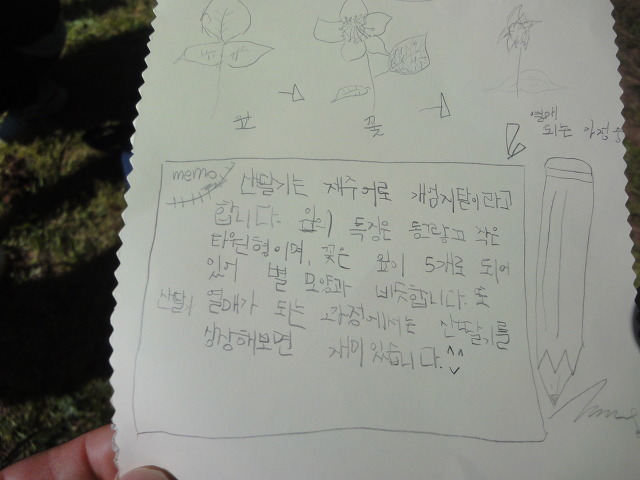 잎
꽃
열매
되는 과정
memo
산딸기는 제주어로 개엄지탈이라고
합니다. 잎의 특징은 동그랗고 작은
타원형이며, 꽃은 잎이 5개로 되어
있어 별 모양과 비슷합니다. 또
산딸기 열매가 되는 과정에서는 산딸기를
상상해보면 재미있습니다.^^